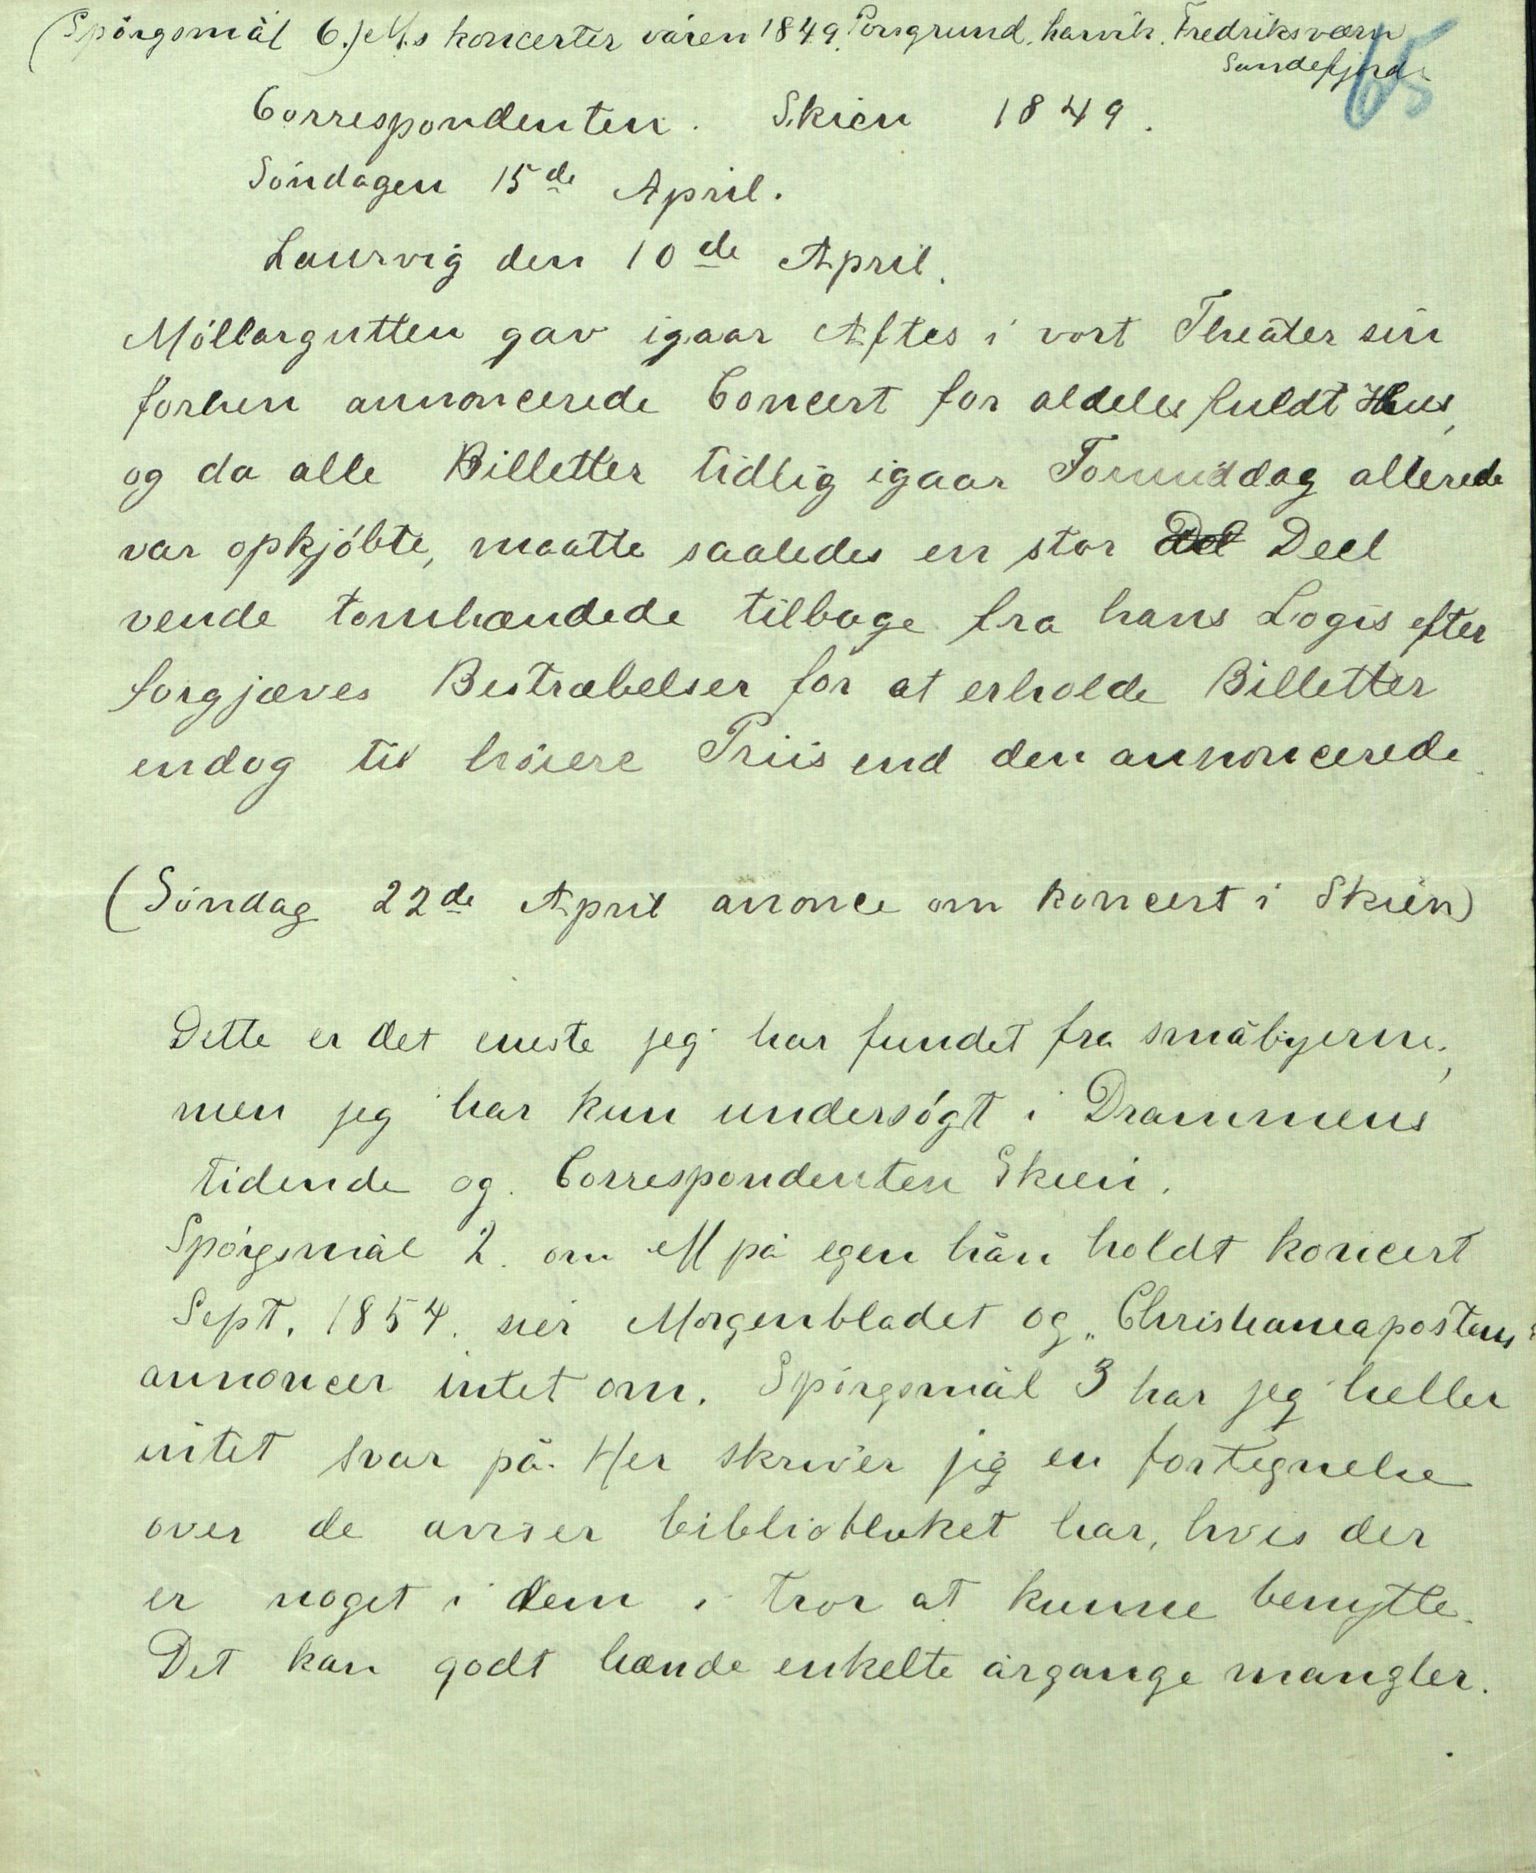 (Spörgsmål 6.) M.s koncerter våren 1849. Porsgrund. Larvik. Fredriksværn
Sandefjord.
65
Correspondenten. Skien 1849.
Söndagen 15de April.
Laurvig den 10de April.
Möllargutten gav igaar Aftes i vort Theater sin
forhen annoncerede Concert for aldeles fuldt Hus,
og da alle Billetter tidlig igaar Formiddag allerede
var opkjöbte, maatte saaledes en stor Deel
vende tomhændede tilbage fra hans Logis efter
forgjæves Bestræbelser for at erholde Billetter
endog til höiere Priis end den annoncerede.
(Söndag 22de April anonce om koncert i Skien)
Dette er det eneste jeg har fundet fra småbyerne,
men jeg har kun undersögt i Drammens
tidende og Correspondenten Skien.
Spörgsmål 2. om M på egen hån holdt koncert
Sept. 1854. sier Morgenbladet og „Christianiapostens“
annoncer intet om. Spörgsmål 3 har jeg heller
intet svar på. Her skriver jeg en fortegnelse
over de aviser biblioteket har, hvis der
er noget i dem i tror at kunne benytte.
Det kan godt hænde enkelte årgange mangler.